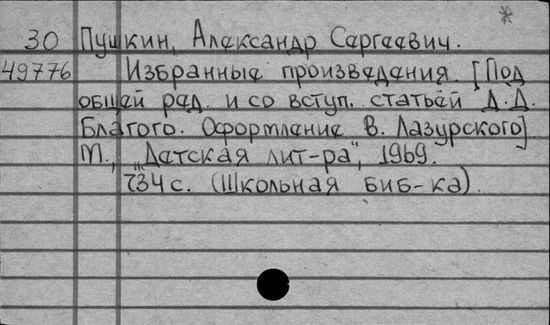 *
30 Пушкин, Александр Сергеевич.
49776 Избранные произведения. [Под
общей ред. и со вступ. статьёй Д.Д.
Благого. Оформление В. Лазурского].
М., „Детская лит-ра", 1969.
734 с. (Школьная биб-ка).